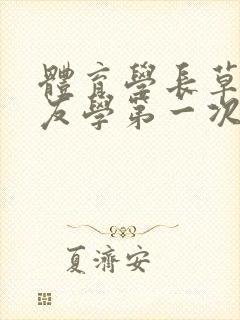 體育學長草
友學第一次
夏濟安